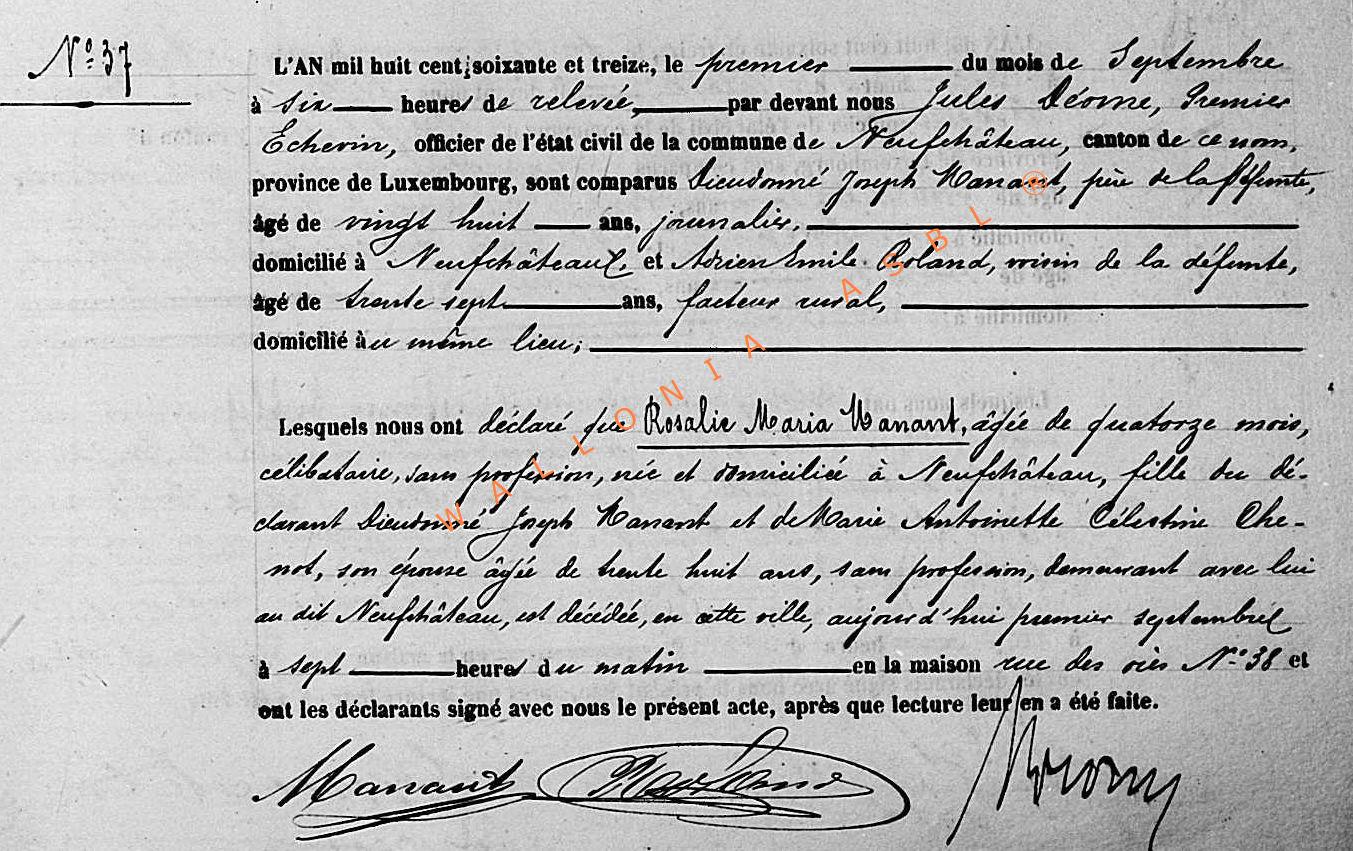 N° 37
L'AN mil huit cent soixante et treize, le premier du mois de Septembre
à six heures de relevée, par devant nous Jules Déome, Premier
Echevin, officier de l'état civil de la commune de Neufchâteau, canton de ce nom,
province de Luxembourg, sont comparus Dieudonné Joseph Manant, père de la défunte,
âgé de vingt huit ans, journalier,
domicilié à Neufchâteau, et Adrien Emile Roland, voisin de la défunte,
âgé de trente sept ans, facteur rural,
domicilié au même lieu;
Lesquels nous ont déclaré que Rosalie Maria Manant, âgée de quatorze mois,
célibataire, sans profession, née et domiciliée à Neufchâteau, fille du dé-
clarant Dieudonné Joseph Manant et de Marie Antoinette Célestine Che-
not, son épouse âgée de trente huit ans, sans profession, demeurant avec lui
au dit Neufchâteau, est décédée, en cette ville, aujourd'hui premier septembre
à sept heures du matin en la maison rue des oies N° 38 et
ont les déclarants signé avec nous le présent acte, après que lecture leur en a été faite.
Manant
WALLONIA ASBL ®